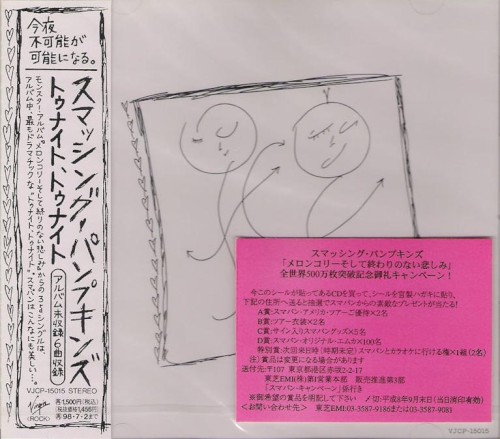 今夜
不可能が
可能になる。
スマッシング・パンプキンズ
トゥナイト、トゥナイト
アルバム未収録6曲収録
モンスター・アルバム“メロンコリーそして終りのない悲しみ”からの3rdシングルは、
アルバム中、最もドラマチックな“トゥナイト、トゥナイト”。スマパンはこんなにも美しい…。
VJCP-15015 STEREO
定価1,500円(税込)
(税抜価格1,456円)
98・7・2まで
Virgin
(ROCK)
スマッシング・パンプキンズ
「メロンコリーそして終わりのない悲しみ」
全世界500万枚突破記念御礼キャンペーン!
今このシールが貼ってあるCDを買って、シールを官製ハガキに貼り、
下記の住所へ送ると抽選でスマパンからの素敵なプレゼントが当たる!
A賞:スマパン・アメリカ・ツアーご優待×2名
B賞:ツアー衣装×2名
C賞:サイン入りスマパングッズ×5名
D賞:スマパン・オリジナル・ミニカ×100名
特別賞:次回来日時(時期未定)スマパンとカラオケに行ける権×1組(2名)
注)賞品は変更になる場合があります
送付先:〒107 東京都港区赤坂2-2-17
東芝EMI(株)第1営業本部 販売推進第3部
「スマパン・キャンペーン」係行き
※御希望の賞品を明記して下さい。〆切:平成8年9月末日(当日消印有効)
<お問い合わせ先> 東芝EMI:03-3587-9186または03-3587-9081
VJCP-15015